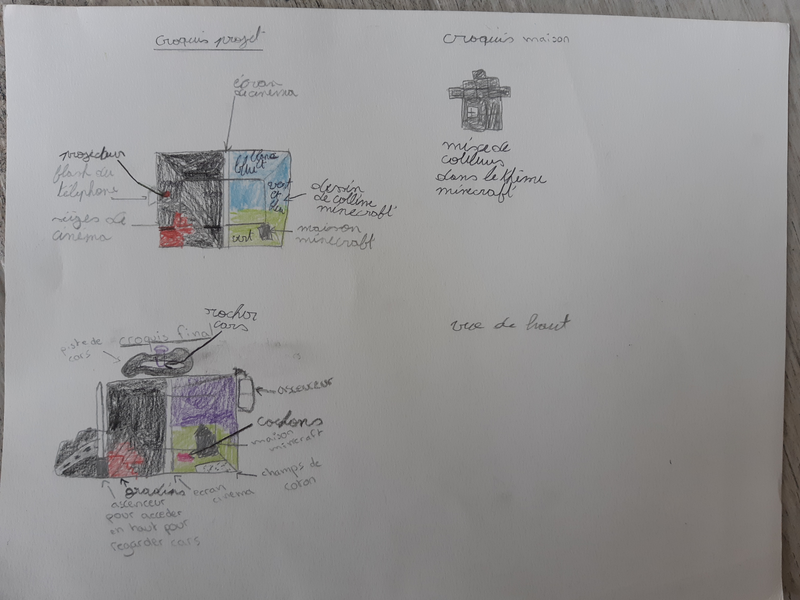 Croquis projet
croquis maison
écran
de cinema
projecteur
flash du
téléphone
sièges de
cinema
blanc
bleu
vert
et
bleu
vert
dessin
de colline
minecraft
maison
minecraft
mixe de
couleurs
dans le thème
minecraft
rocher
cars
croquis final
piste de
cars
vue de haut
ascenseur
cochons
maison
minecraft
champs de
coton
gradins
ecran
cinema
ascenceur
pour accéder
en haut pour
regarder cars